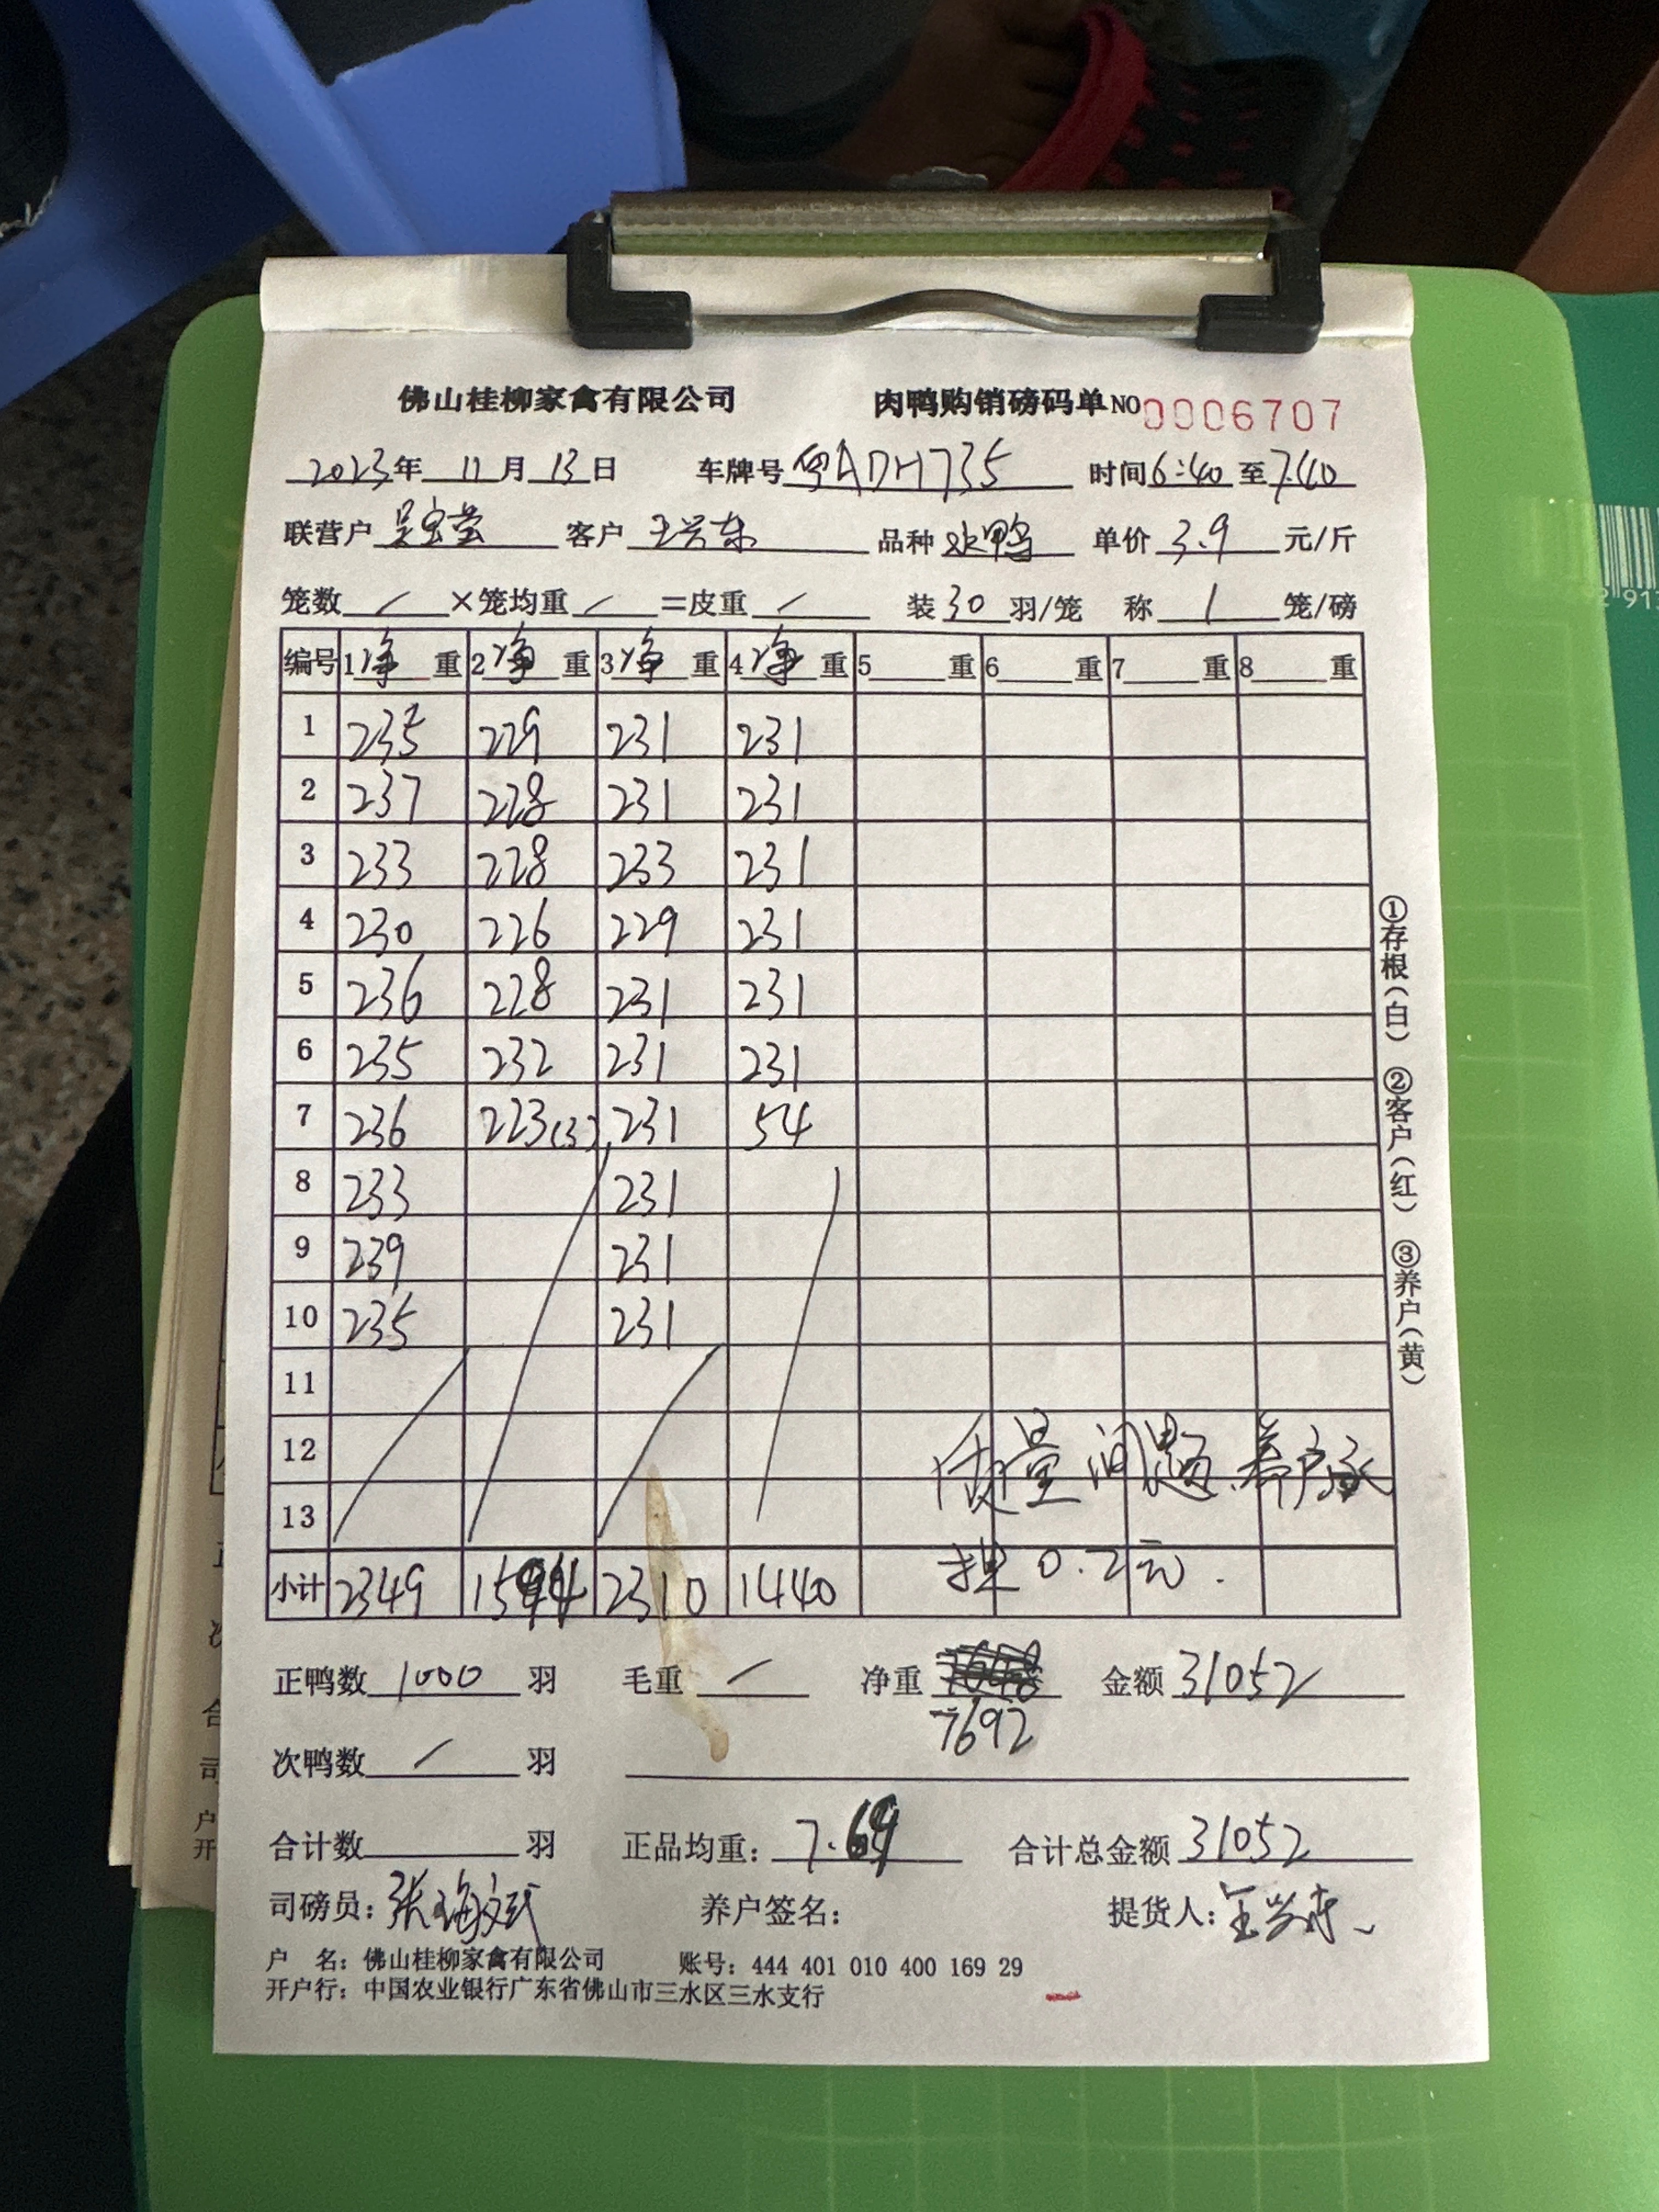 佛山桂柳家禽有限公司 肉鸭购销磅码单 NO 0006707
2023年 11月 13日 车牌号 粤ADH735 时间 6:40 至 7:40
联营户 客户 王兴东 品种 水鸭 单价 3.9 元/斤
笼数 / ×笼均重 / =皮重 / 装 30 羽/笼 称 1 笼/磅
编号 1净重 2净重 3净重 4净重 5 重 6 重 7 重 8 重
1 235 229 231 231
2 237 228 231 231
3 233 228 233 231
4 230 226 229 231
5 236 228 231 231
6 235 232 231 231
7 236 223(3) 231 54
8 233 231
9 239 231
10 235 231
11
12 质量问题.养户承
13
担0.2元.
小计 2349 1594 2310 1440
正鸭数 1000 羽 毛重 / 净重 金额 31052
7692
次鸭数 / 羽
合计数 羽 正品均重: 7.69 合计总金额 31052
司磅员: 养户签名: 提货人: 王兴东
户 名: 佛山桂柳家禽有限公司 账号: 444 401 010 400 169 29
开户行: 中国农业银行广东省佛山市三水区三水支行
①存根(白) ②客户(红) ③养户(黄)